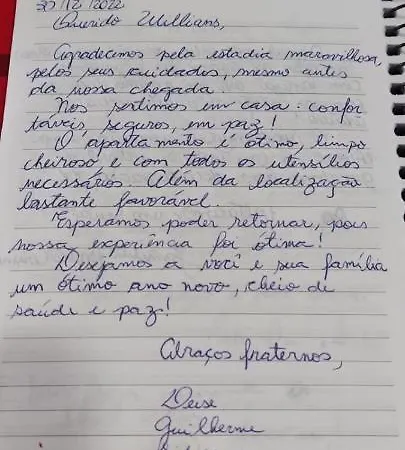 30/12/2022
Querido Willians,
Agradecemos pela estadia maravilhosa,
pelos seus cuidados, mesmo antes
da nossa chegada.
Nos sentimos em casa: confor
táveis, seguros, em paz!
O apartamento é ótimo, limpo
cheiroso e com todos os utensílios
necessários. Além da localização
bastante favorável.
Esperamos poder retornar, pois
nossa experiência foi ótima!
Desejamos a você e sua família
um ótimo ano novo, cheio de
saúde e paz!
Abraços fraternos,
Deise
Guilherme